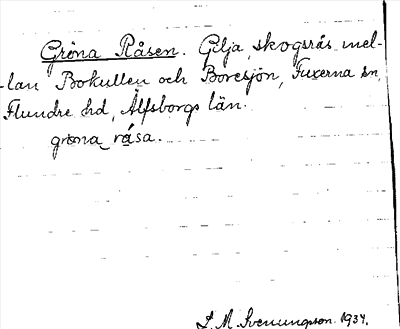 Gröna Råsen. Gilja, skogsrås mel-
lan Bokullen och Boresjön, Fuxerna sn,
Flundre hd, Älfsborgs län.
gröna råsa.
S. M. Svenungsson 1934.